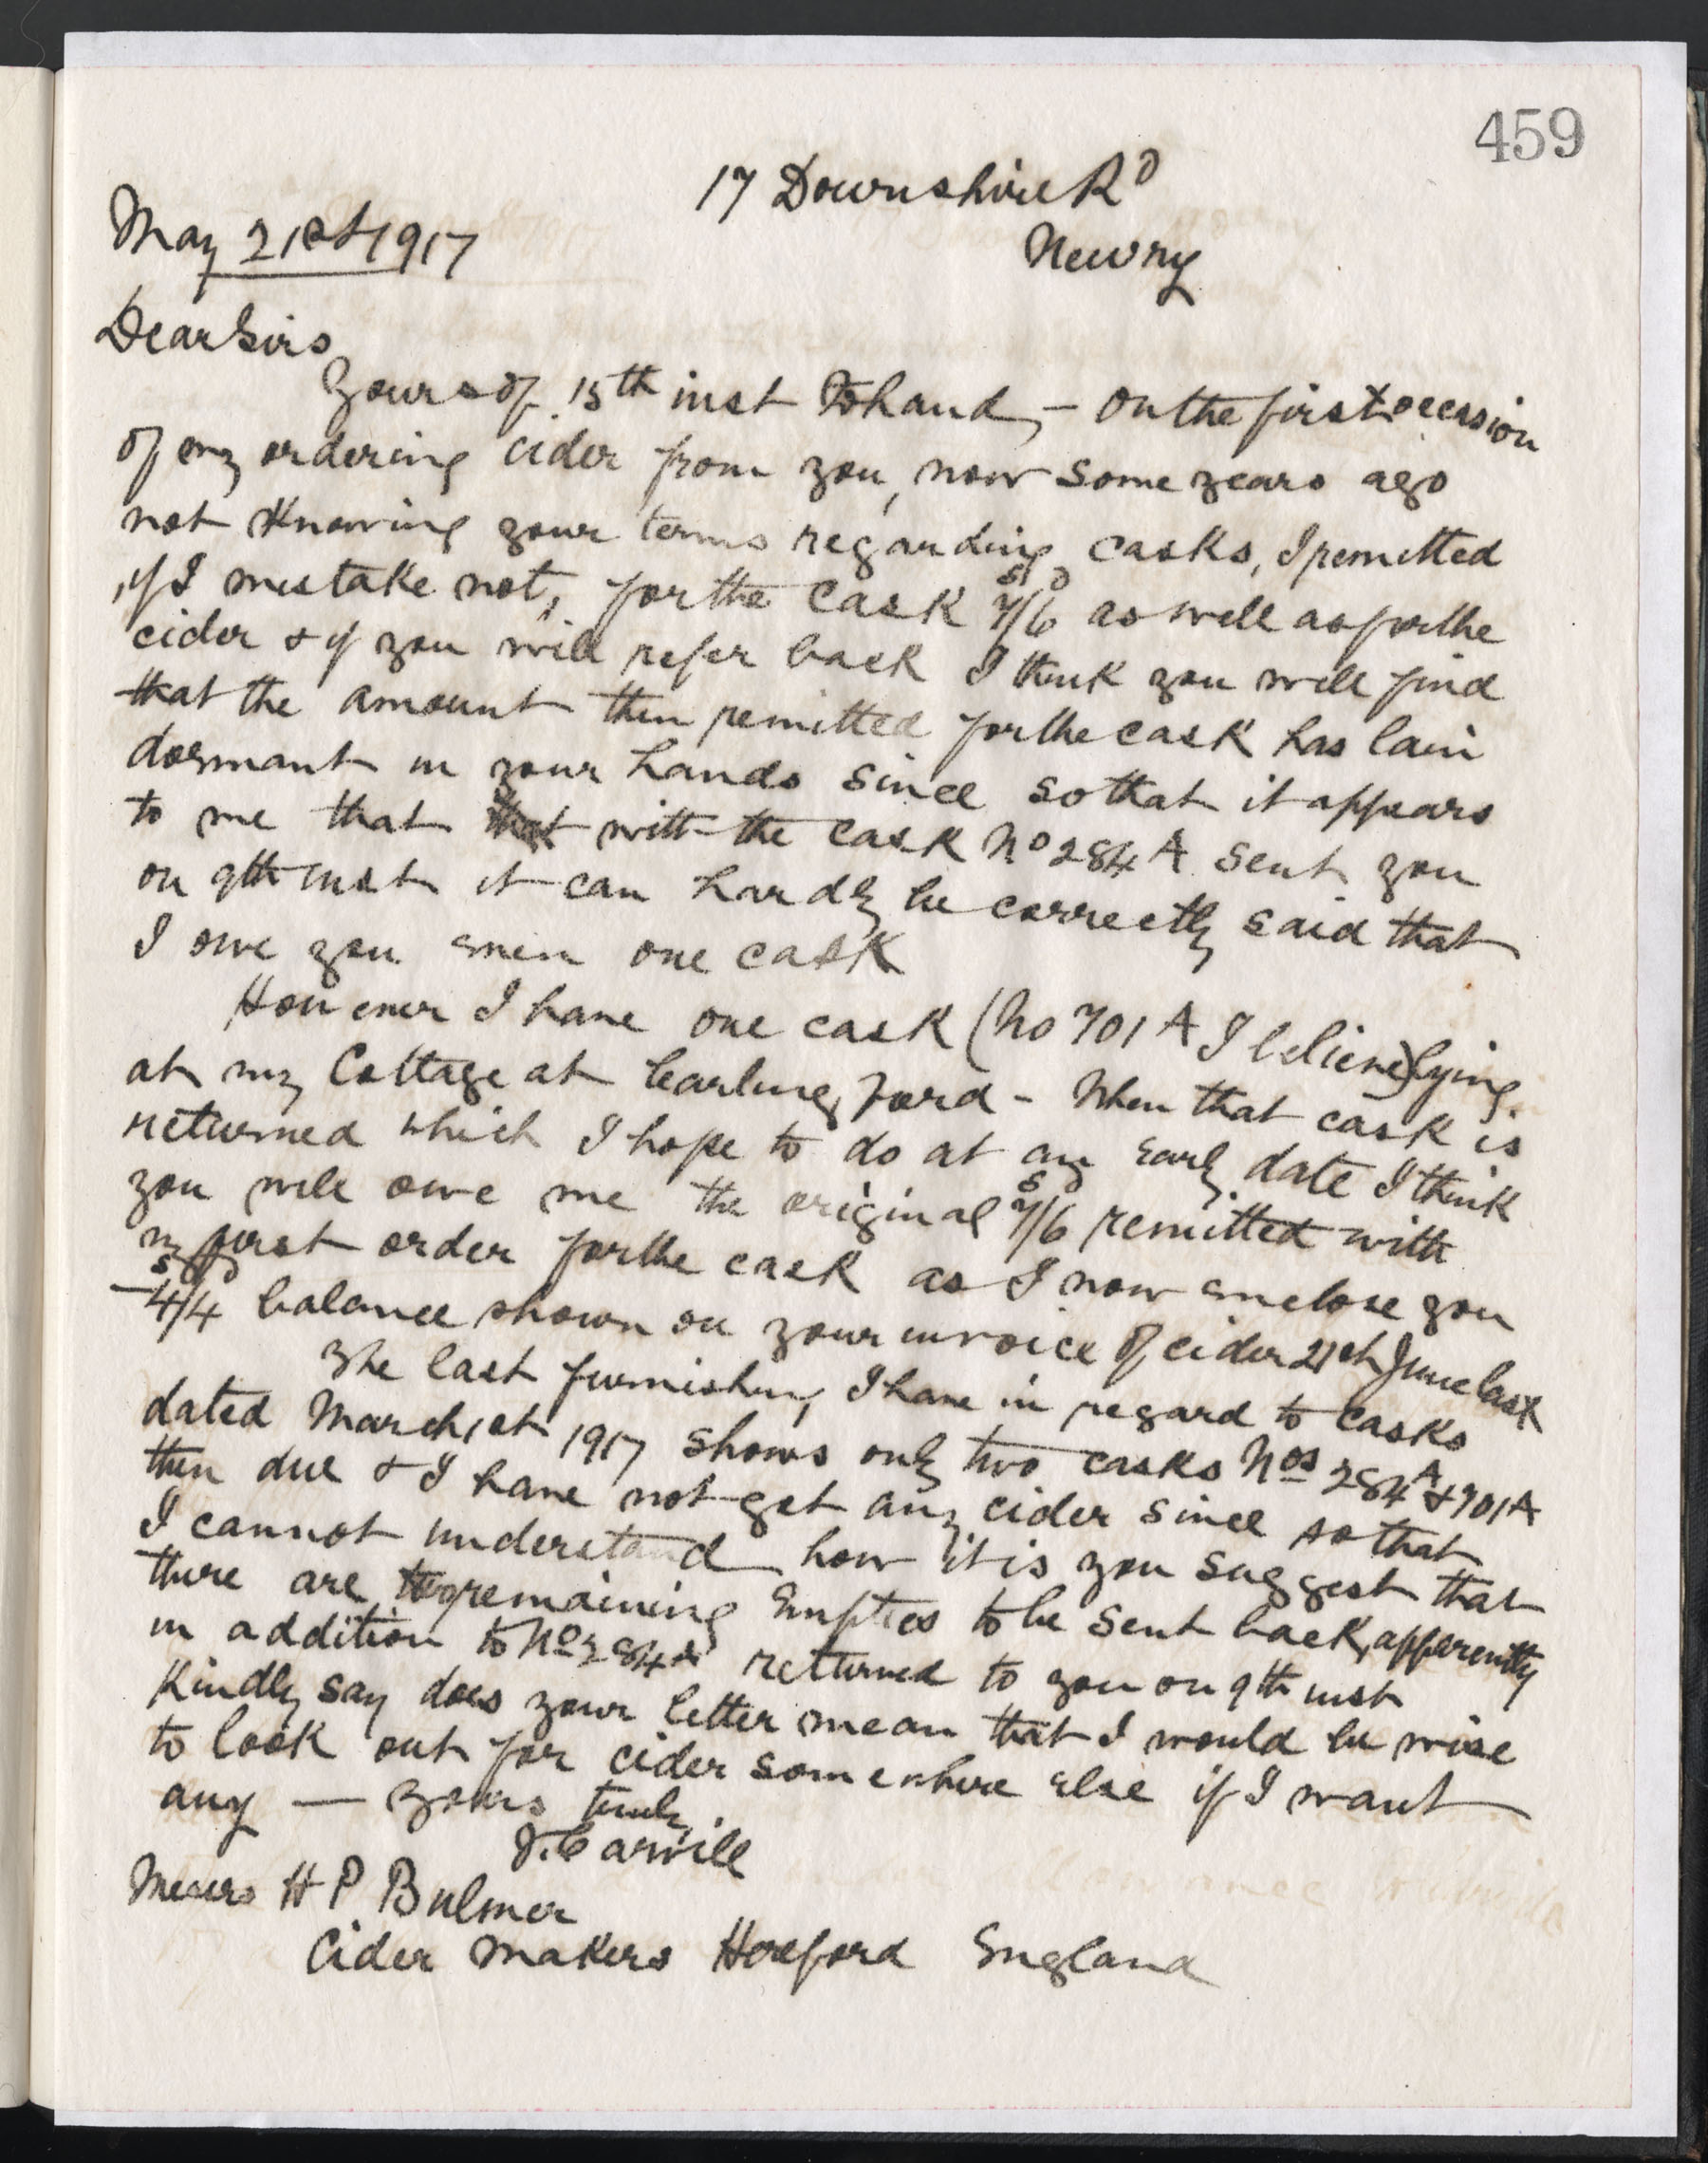 459
17 Downshire Rd
May 21st 1917
Newry
Dear Sirs
Yours of 15th inst to hand, – On the first occasion
of my ordering cider from you, now some years ago
not knowing your terms regarding casks, I remitted
, if I mistake not, for the cask 7s/6d as well as for the
cider & if you will refer back I think you will find
that the amount then remitted for the cask has lain
dormant in your hands since so that it appears
to me that that with the cask No 284 A sent you
on 9th inst it can hardly be correctly said that
I owe you even one cask
However I have one cask (No 701 A I believe) lying
at my Cottage at Carlingford – When that cask is
returned which I hope to do at an early date I think
you will owe me the original 7s/6 remitted with
my first order for the cask as I now enclose you
4s/4d balance shown on your invoice of cider 21st June last
The last furnishing I have in regard to casks
dated March 1st 1917 shows only two casks Nos 284A & 701A
then due & I have not got any cider since so that
I cannot understand how it is you suggest that
there are two remaining Empties to be sent back, apparently
in addition to No 284A returned to you on 9th inst
Kindly say does your letter mean that I would be wise
to look out for cider somewhere else if I want
any — Yours truly
Carvill
Messrs H P Bulmer
Cider Makers Hereford England